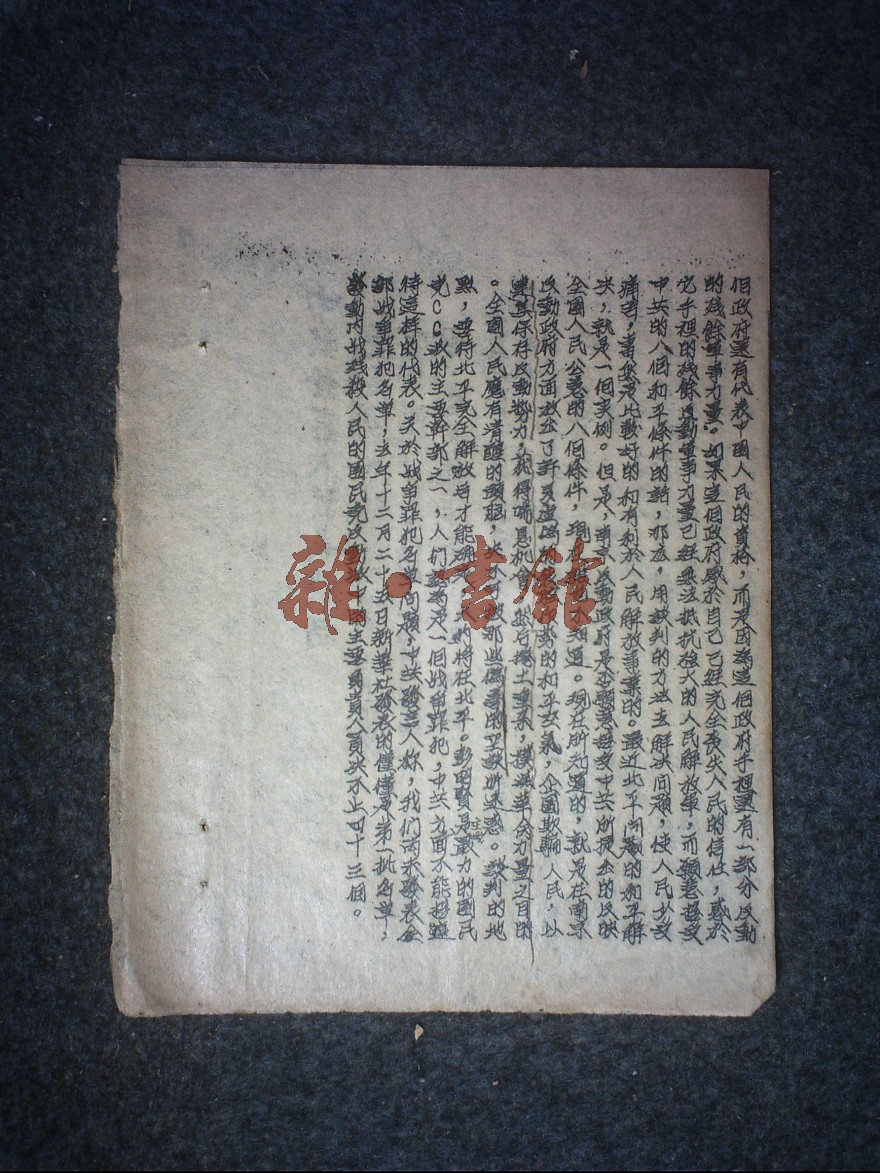 個政府還有代表中國人民的資格,而是因為這個政府手裡還有一部分反動
的殘餘軍事力量。如果這個政府感於自己已經完全喪失人民的信任,感於
它手裡的殘餘反動軍事力量已經無法抵抗強大的人民解放軍,而願意接受
中共的八個和平條件的話,那麼,用談判的方法去解決問題,使人民少受
痛苦,當然是比較好的和有利於人民解放事業的。最近北平問題的和平解
決,就是一個實例。但是,南京反動政府是否願意接受中共所提出的反映
全國人民公意的八個條件,現在 知道。現在所知道的,就是在南京
反動政府方面放出了許多虛偽 的和平空氣,企圖欺騙人民,以
達其保存反動勢力,獲得喘息機會,然后捲土重來,撲滅革命力量之目的
。全國人民應有清醒的頭腦,決不可被那些偽善的空談所迷惑。談判的地
點,要待北平完全解放后才能確定, 將在北平。彭昭賢是主戰最力的國民
党CC派的主要幹部之一,人們認為是一個戰爭罪犯,中共方面不能接待
待這樣的代表。关於战爭罪犯名單問題,中共發言人称,我們尚未發表全
部战爭罪犯名單,去年十二月二十五日新華社發表的僅僅是第一批名單;
發動內战殘殺人民的國民党反動政府的主要負責人員決不止四十三個。
雜·書館